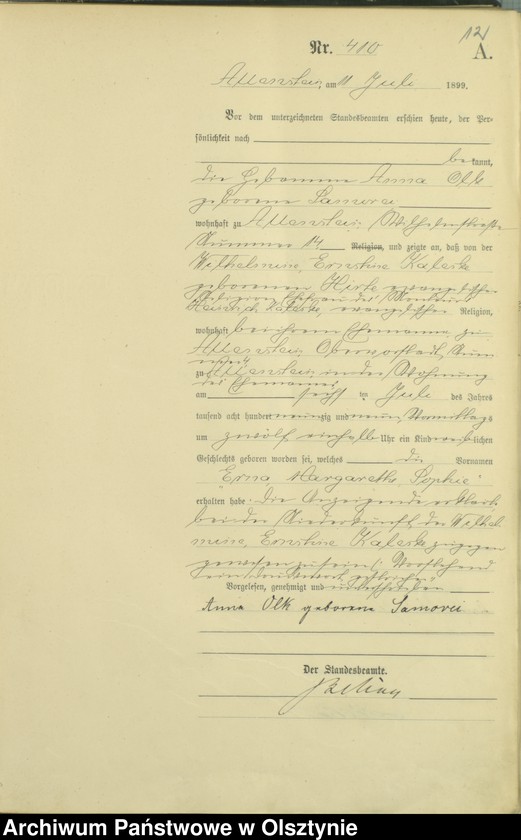 12
Nr. 410
A.
Allenstein, am 11 Juli 1899.
Vor dem unterzeichneten Standesbeamten erschien heute, der Per-
sönlichkeit nach
bekannt,
die Hebamme Anna Olk
geborene Samorei
wohnhaft zu Allenstein, Wilhelmstraße
Nummer 14 Religion, und zeigte an, daß von der
Wilhelmine, Ernstine Kaleske
geborenen Hirte evangelischer
Religion, Ehefrau des
Heinrich Kaleske, evangelischer Religion,
wohnhaft bei ihrem Ehemanne zu
Allenstein Obervorstadt, Num
zu Allenstein in der Wohnung
des Ehemannes
am sechsten Juli des Jahres
tausend acht hundert neunzig und neun Vormittags
um zwölf einhalb Uhr ein Kind weiblichen
Geschlechts geboren worden sei, welches die Vornamen
Erna Margarethe Sophie
erhalten habe. Die Anzeigende erklärt
bei der Niederkunft der Wilhel
mine, Ernstine Kaleske zugegen
gewesen zu sein. Vorstehend
ein Druckwort gestrichen
Vorgelesen, genehmigt und unterschrieben
Anna Olk geborene Samorei
Der Standesbeamte.
Archiwum Państwowe w Olsztynie